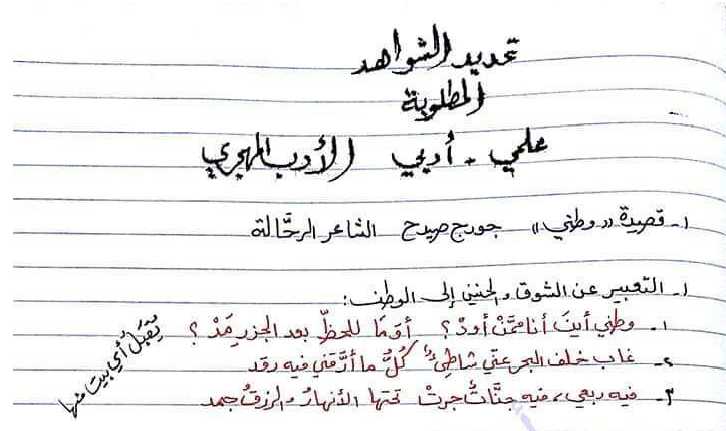 تحديد الشواهد
المطلوبة
علمي - أدبي الأدب المهجري
١- قصيدة «وطني» جورج صيدح الشاعر الرحَّالة
١- التعبير عن الشوق والحنين إلى الوطن:
١- وطني أينَ أنا ممَّنْ أودْ؟ أوَمَا للحظِّ بعد الجزرِ مَدْ؟
٢- غاب خلف البحر عنّي شاطئٌ كُلُّ ما أرَّقني فيه رقد
٣- فيه ربعي، فيه جنَّاتٌ جرتْ تحتها الأنهارُ والرزقُ جمد
يُقبَل أي بيت منها